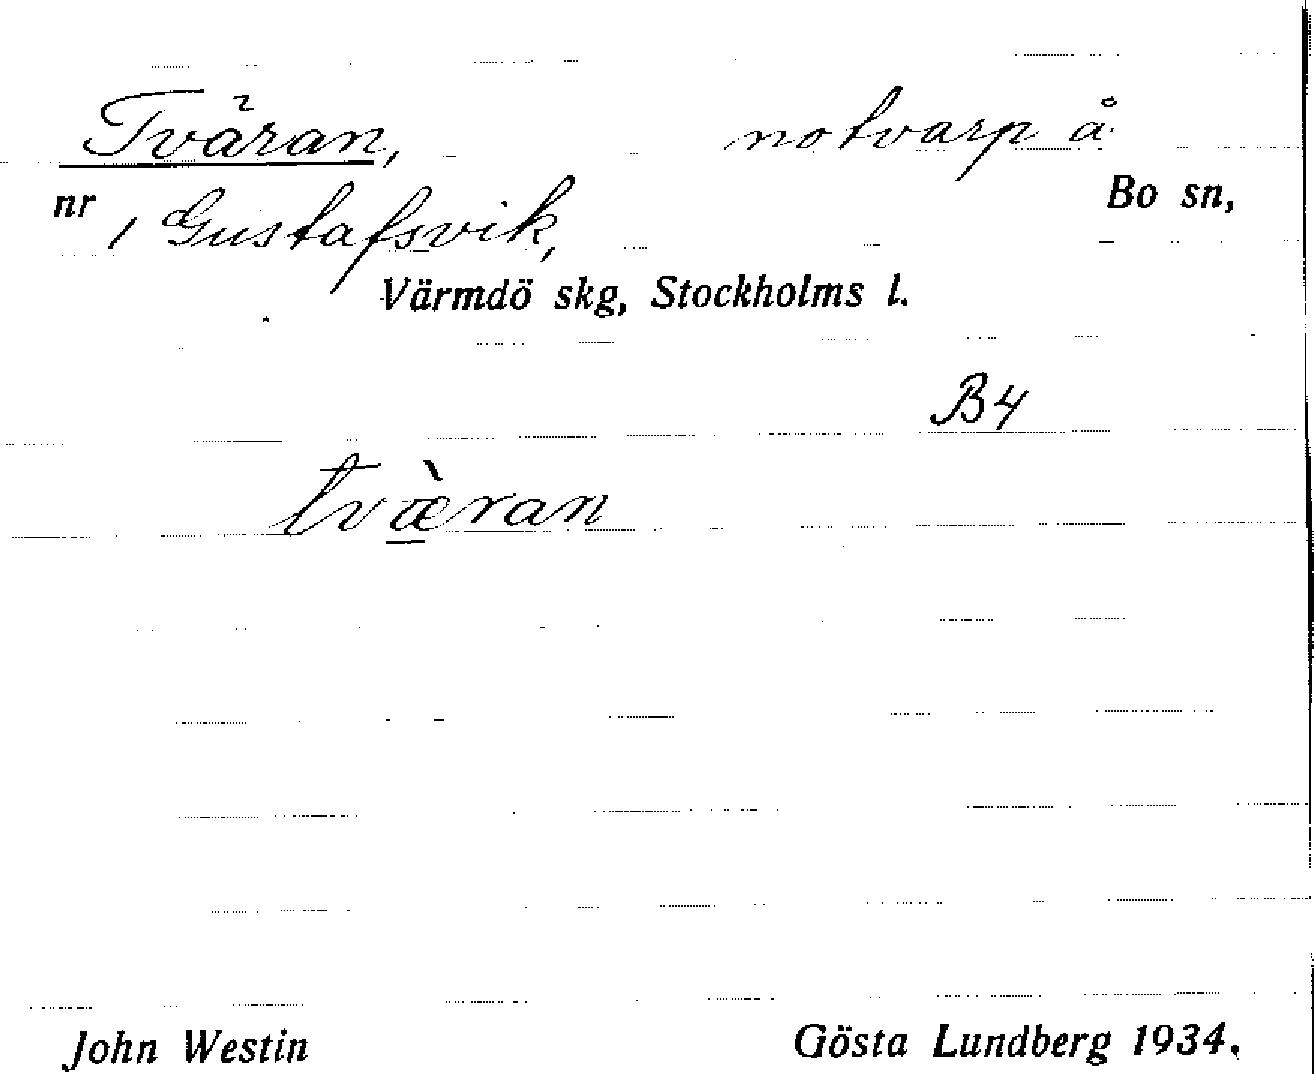 Tväran, notvarp å
nr 1 Gustafsvik, Bo sn,
Värmdö skg, Stockholms l.
B4
tvæ̀ran
John Westin Gösta Lundberg 1934.